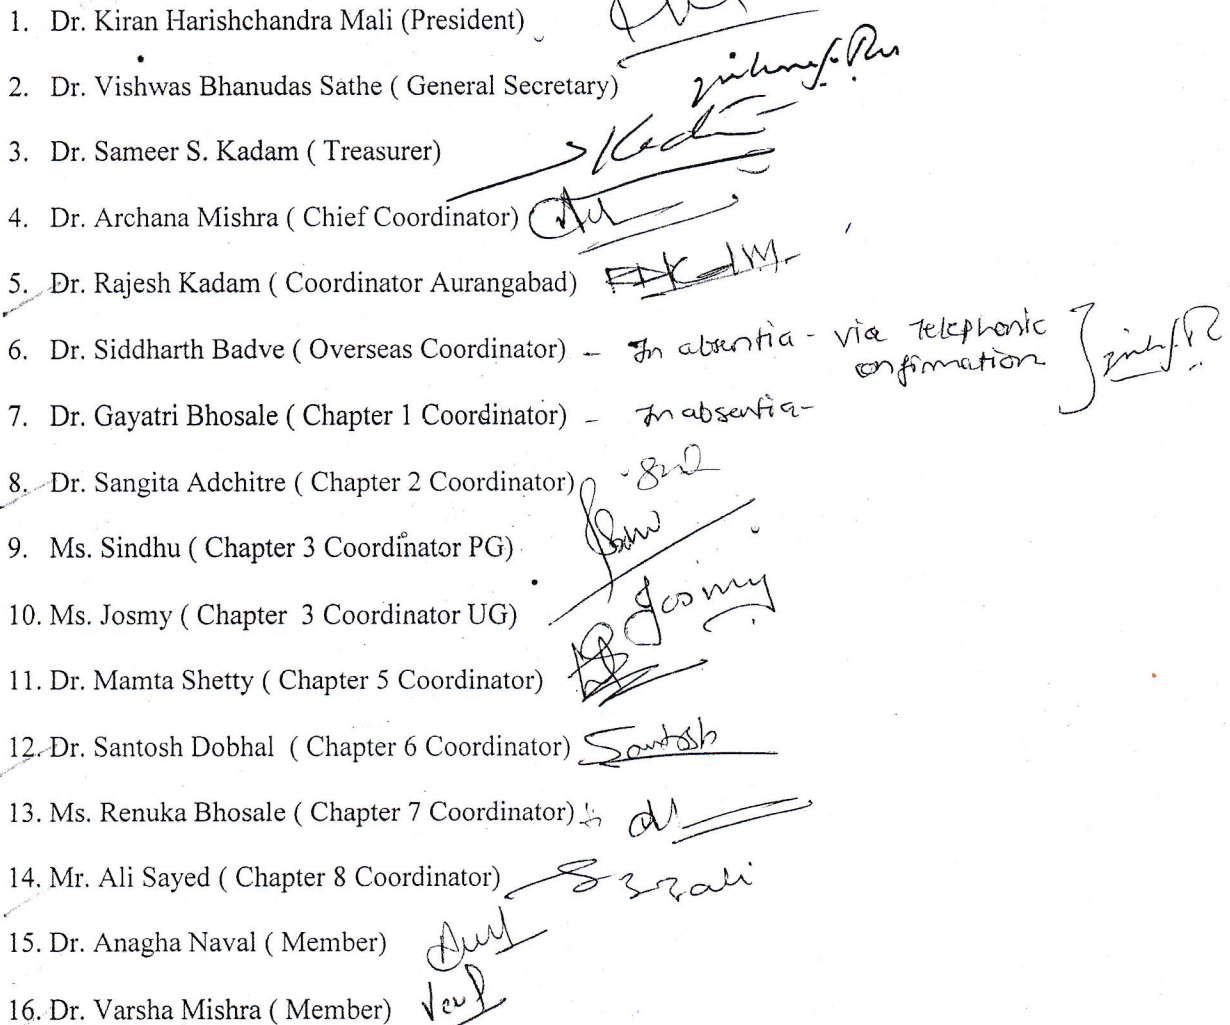 1. Dr. Kiran Harishchandra Mali (President)
2. Dr. Vishwas Bhanudas Sathe ( General Secretary)
3. Dr. Sameer S. Kadam ( Treasurer)
4. Dr. Archana Mishra ( Chief Coordinator)
5. Dr. Rajesh Kadam ( Coordinator Aurangabad)
6. Dr. Siddharth Badve ( Overseas Coordinator) – In absentia - via Telephonic
confirmation
7. Dr. Gayatri Bhosale ( Chapter 1 Coordinator) – In absentia-
8. Dr. Sangita Adchitre ( Chapter 2 Coordinator)
9. Ms. Sindhu ( Chapter 3 Coordinator PG)
10. Ms. Josmy ( Chapter 3 Coordinator UG) Josmy
11. Dr. Mamta Shetty ( Chapter 5 Coordinator)
12. Dr. Santosh Dobhal ( Chapter 6 Coordinator) Santosh
13. Ms. Renuka Bhosale ( Chapter 7 Coordinator)
14. Mr. Ali Sayed ( Chapter 8 Coordinator)
15. Dr. Anagha Naval ( Member)
16. Dr. Varsha Mishra ( Member)